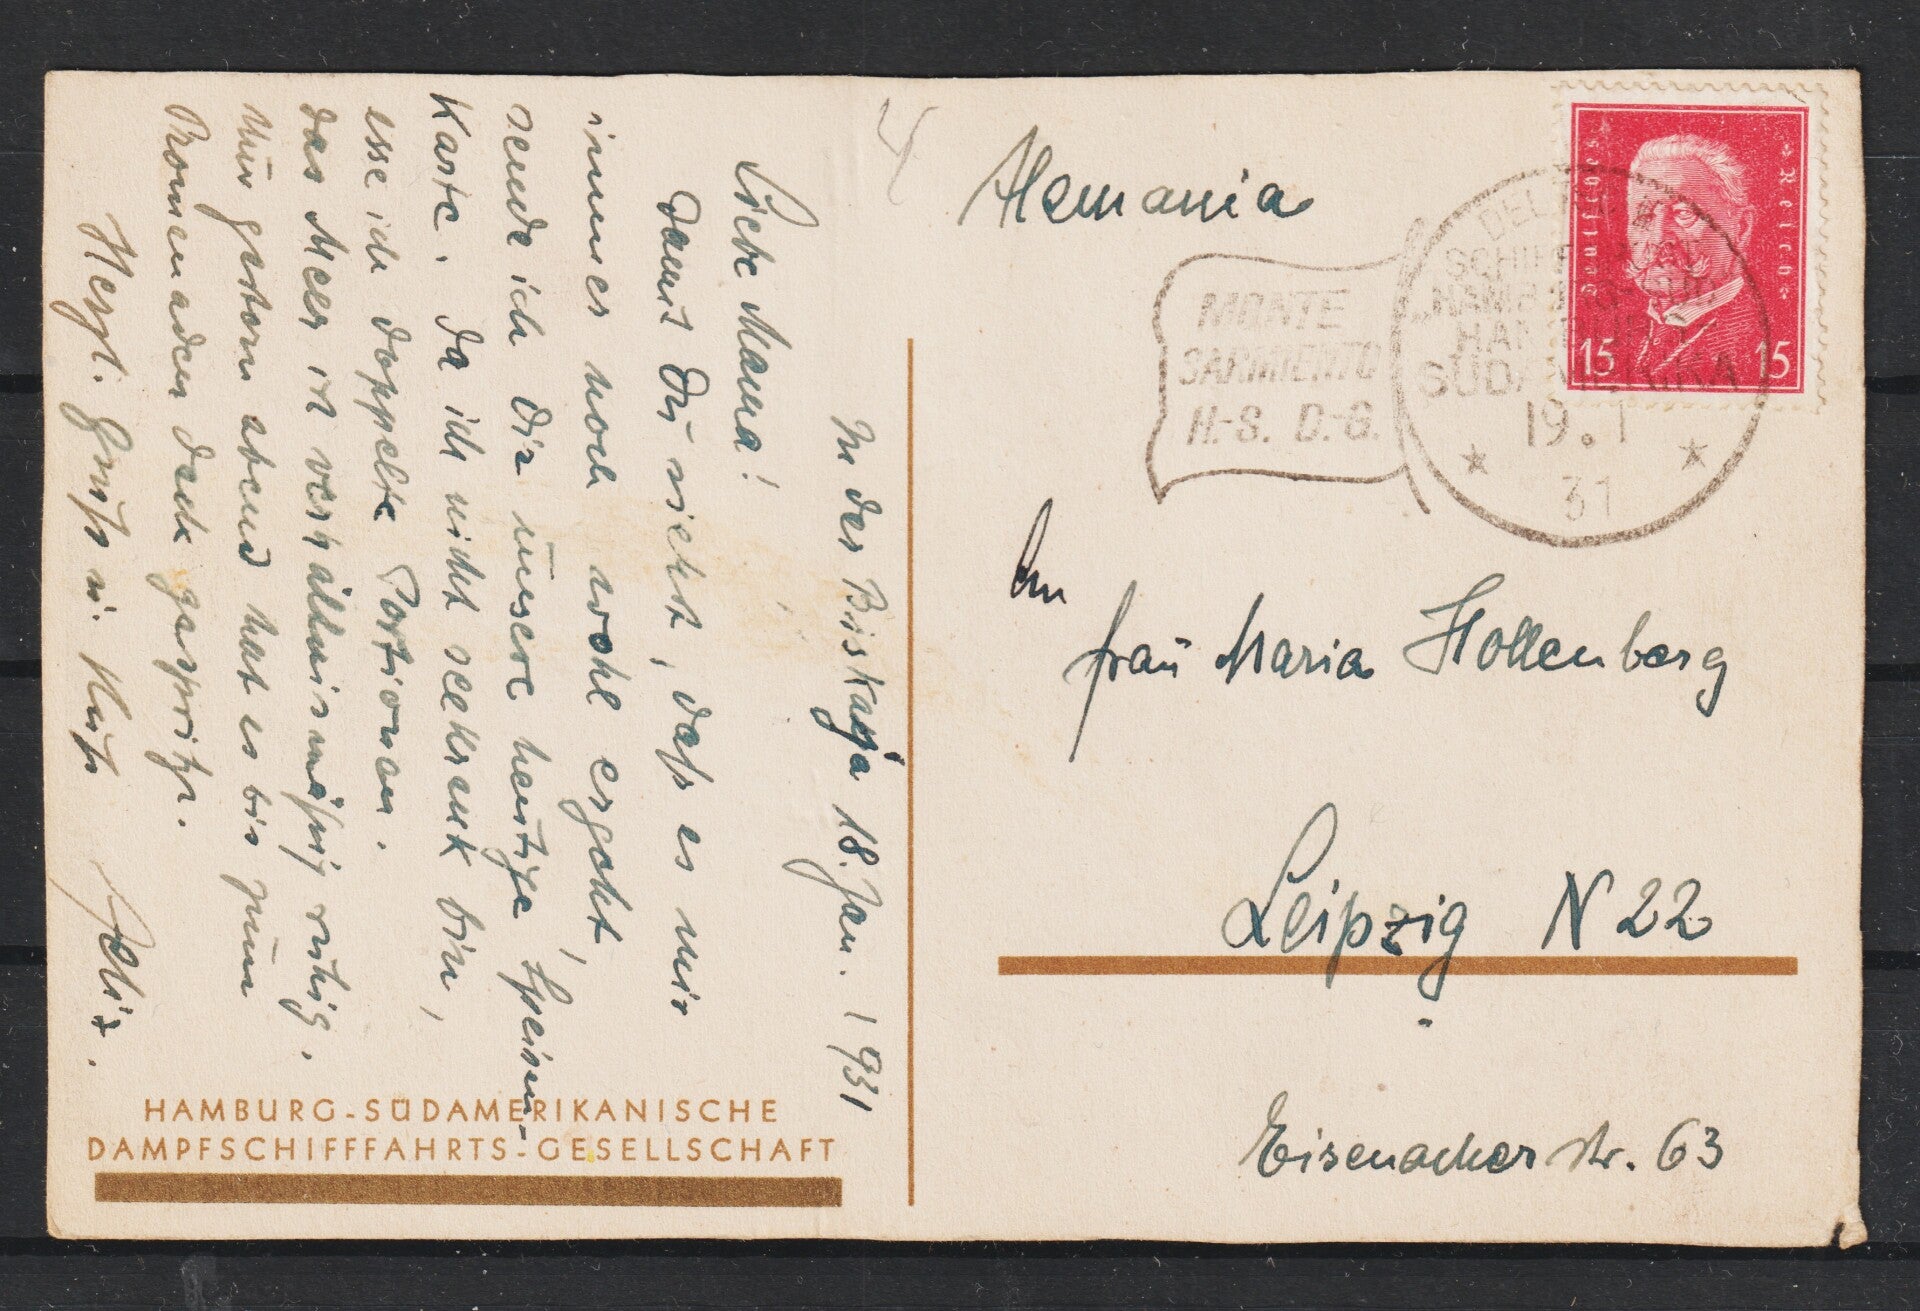 In der Biskaya 18. Jan. 1931
Liebe Mama!
Damit Du siehst, daß es mir
immer noch wohl ergeht,
sende ich Dir unsere heutige Speisen-
Karte. Da ich nicht seekrank bin,
esse ich doppelte Portionen.
Das Meer ist verhältnismäßig ruhig.
Nur gestern abend hat es bis zum
Promenaden deck gespritzt.
Herzl. Gruß u. Kuß
HAMBURG-SÜDAMERIKANISCHE
DAMPFSCHIFFFAHRTS-GESELLSCHAFT
Alemania
Deutsches Reich
15 15
MONTE
SARMIENTO
H.-S. D.-G.
SCHIFFSPOST
HAMBURG-
SÜDAMERIKA
19.1
31
An
Frau Maria Hollenberg
Leipzig N 22
Eisenacher Str. 63